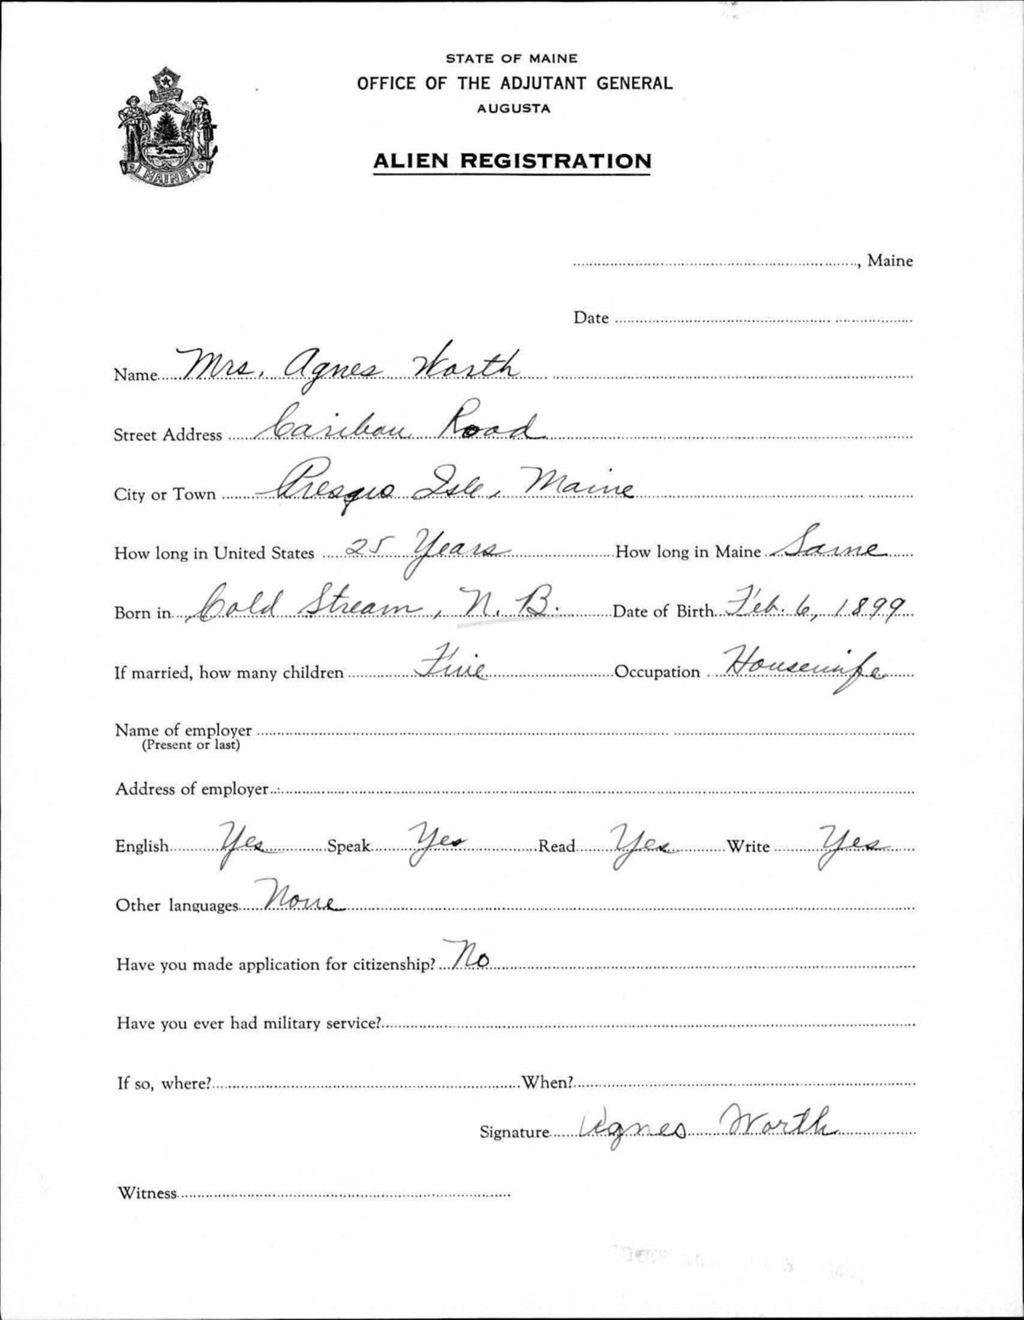 STATE OF MAINE
OFFICE OF THE ADJUTANT GENERAL
AUGUSTA
ALIEN REGISTRATION
MAINE
, Maine
Date
Name Mrs. Agnes Worth
Street Address Caribou Road
City or Town Presque Isle, Maine
How long in United States 25 Years How long in Maine Same
Born in Cold Stream, N. B. Date of Birth Feb. 6, 1899
If married, how many children Five Occupation Housewife
Name of employer
(Present or last)
Address of employer
English Yes Speak Yes Read Yes Write Yes
Other languages None
Have you made application for citizenship? No
Have you ever had military service?
If so, where? When?
Signature Agnes Worth
Witness